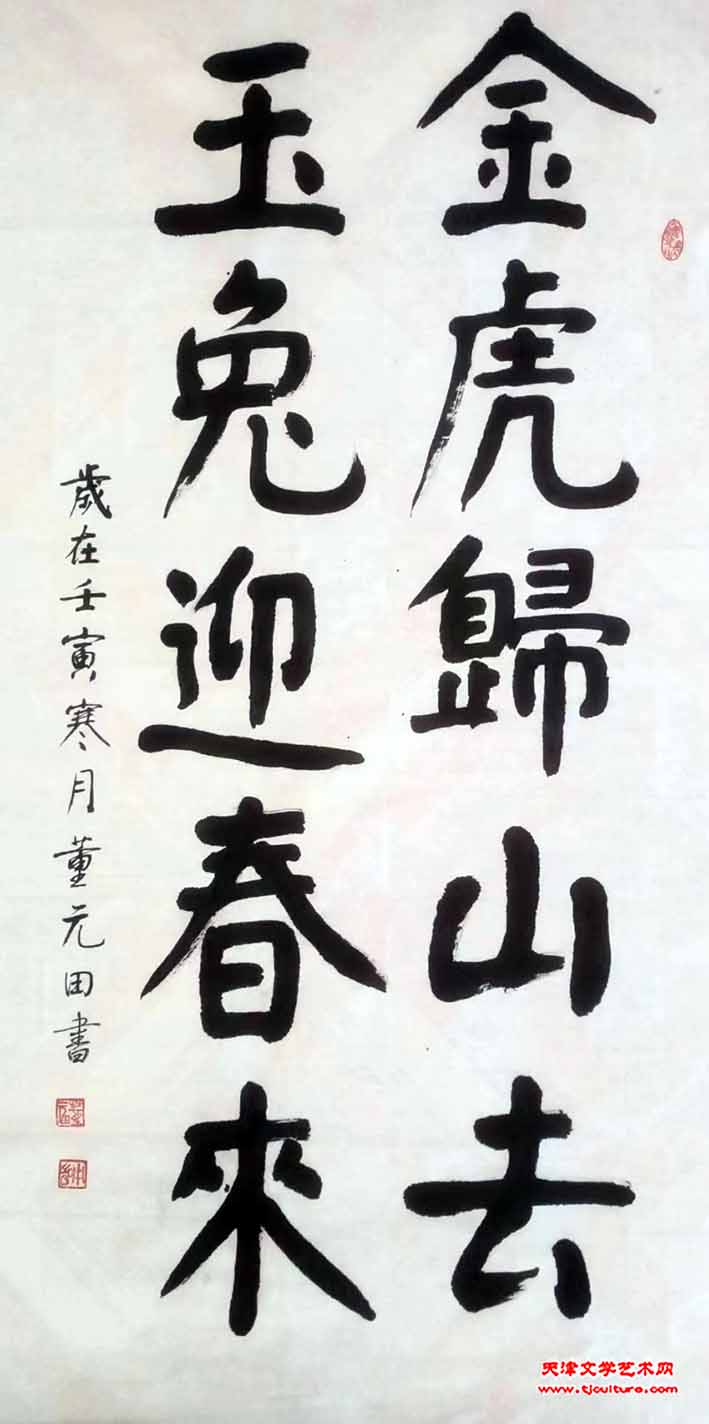 金虎歸山去
玉兔迎春來
歲在壬寅寒月董元田書
天津文学艺术网
www.tjculture.com